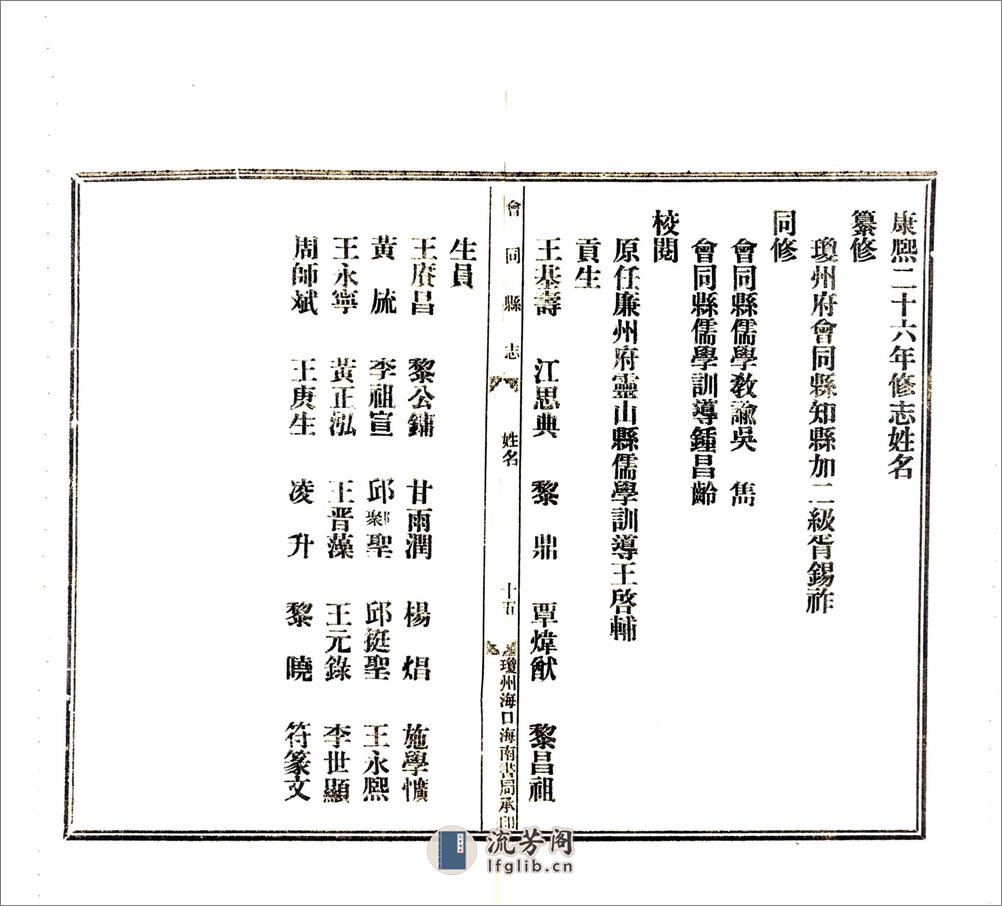 康熙二十六年修志姓名
纂修
瓊州府會同縣知縣加二級胥錫祚
同修
會同縣儒學教諭吳　雋
會同縣儒學訓導鍾昌齡
校閱
原任廉州府靈山縣儒學訓導王啓輔
貢生
王基壽　江思典　黎　鼎　覃煒猷　黎昌祖
會同縣志　姓名　十五　瓊州海口海南書局承印
生員
王賡昌　黎公鏞　甘雨潤　楊　焻　施學懭
黃　旒　李祖宣　邱聖　邱挺聖　王永熙
王永寧　黃正泓　王晋藻　王元錄　李世顯
周師斌　王庚生　凌　升　黎　曉　符篆文
流芳阁
lfglib.cn